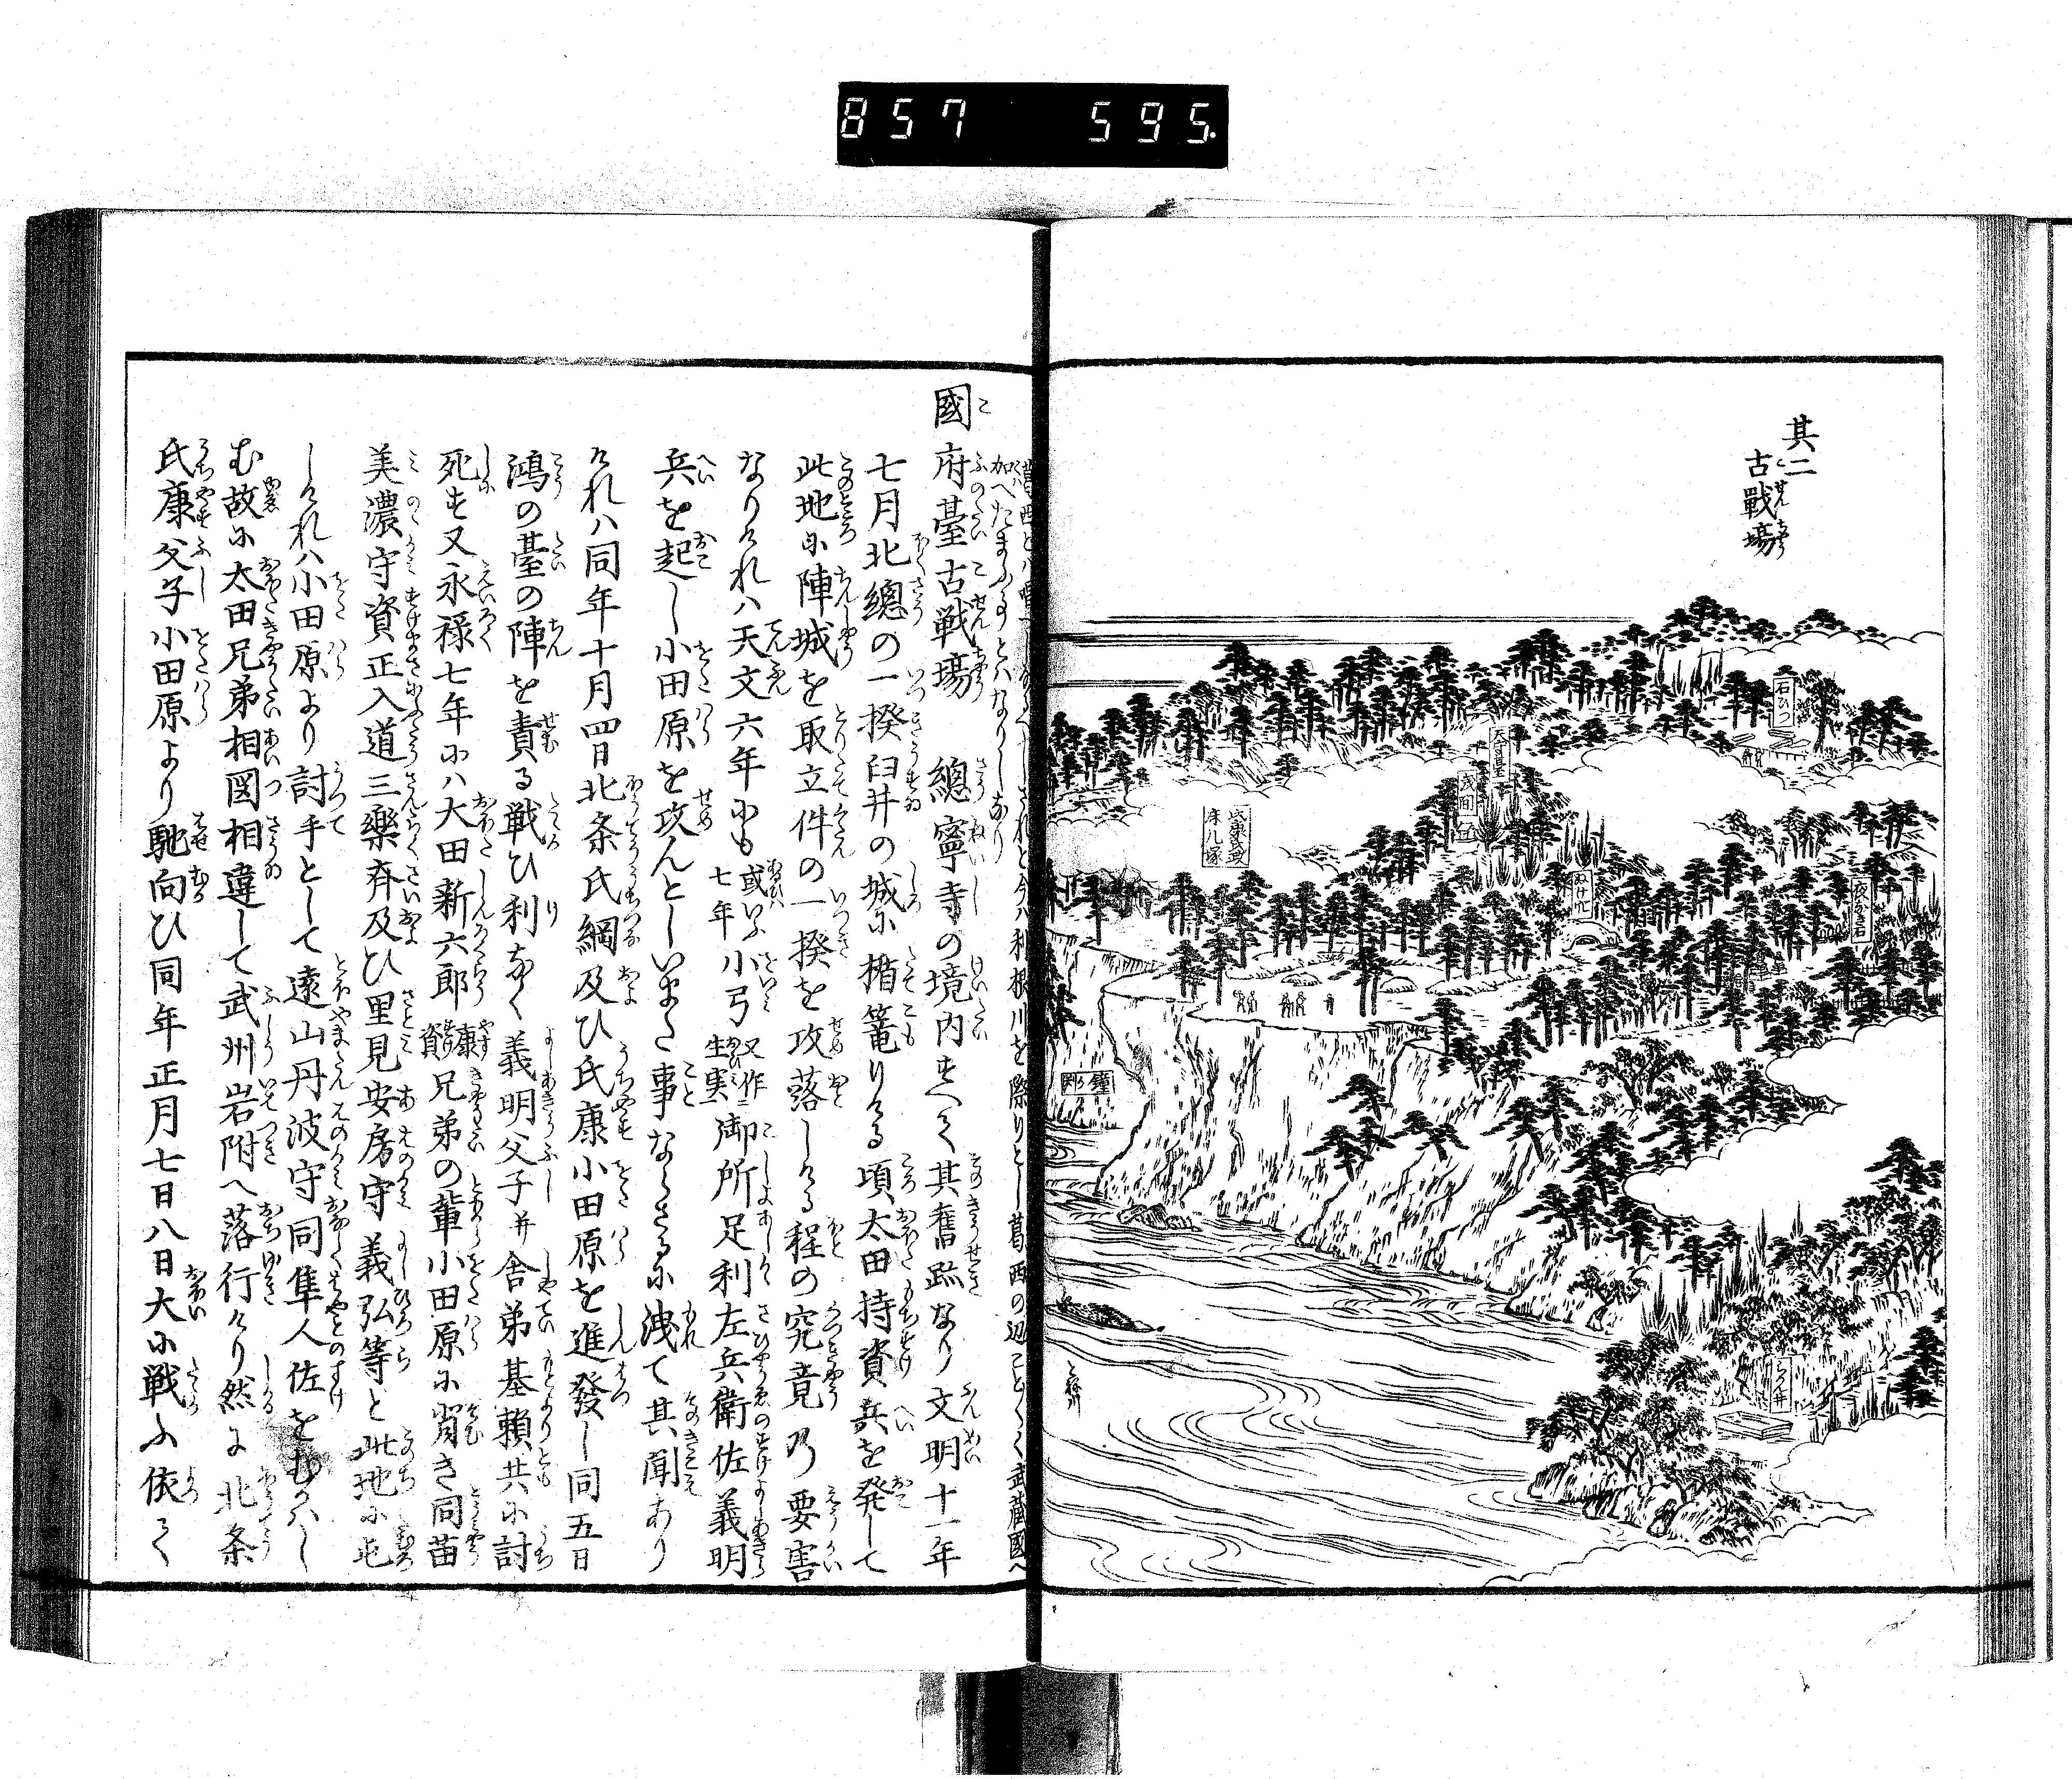 857 595
其二
古戰場
石ひつ
天守臺
床几塚
ぬけ穴
夜なき石
鐘が淵
らかん井
葛西とハ唱へなるべしされと今ハ利根川を際りとし葛西の辺こと〱く武藏國へ
加へたまふ事とハなりしなり
國府臺古戰場 總寧寺の境内すべて其舊跡なり文明十一年
七月北總の一揆臼井の城に楯篭りける頃太田持資兵を発して
此地に陣城を取立件の一揆を攻落しける程の究竟乃要害
なりけれハ天文六年にも或ハ七年いふ小弓又作生実御所足利左兵衛佐義明
兵を起し小田原を攻んとしいまた事ならさるに洩て其聞あり
けれハ同年十月四日北条氏綱及ひ氏康小田原を進發し同五日
鴻の臺の陣を責る戦ひ利なく義明父子并舎弟基頼共に討
死す又永禄七年にハ大田新六郎康資兄弟の輩小田原に背き同苗
美濃守資正入道三樂斉及ひ里見安房守義弘等と此地に屯
しけれハ小田原より討手として遠山丹波守同隼人佐をむかハし
む故に太田兄弟相図相違して武州岩附へ落行けり然に北条
氏康父子小田原より馳向ひ同年正月七日八日大に戦ふ依て